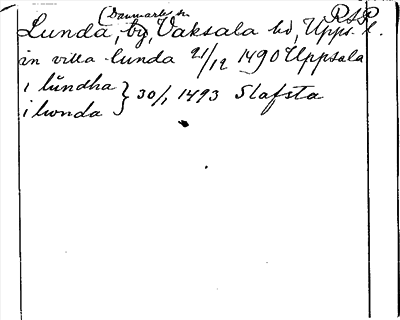 (Danmarks sn RSP
Lunda, by, Vaksala hd, Upps. l.
in villa lunda 21/12 1490 Uppsala
i lundha } 30/1 1493 Slafsta
i lwnda